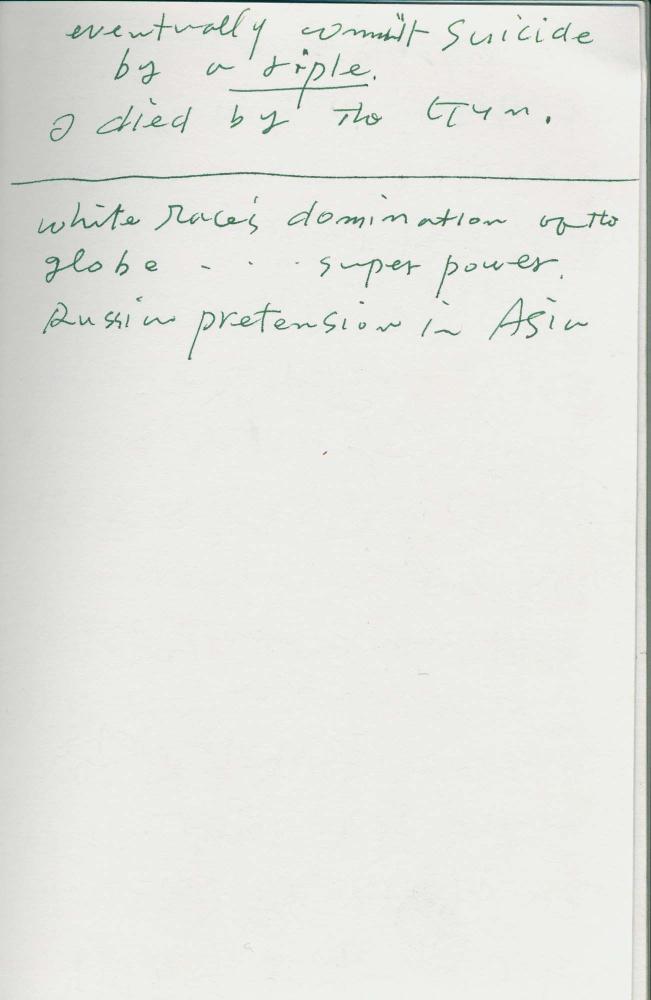 eventually commit suicide
by a riple.
I died by the Gun.
white Race's domination of the
globe - . . super power.
Russian pretension in Asia